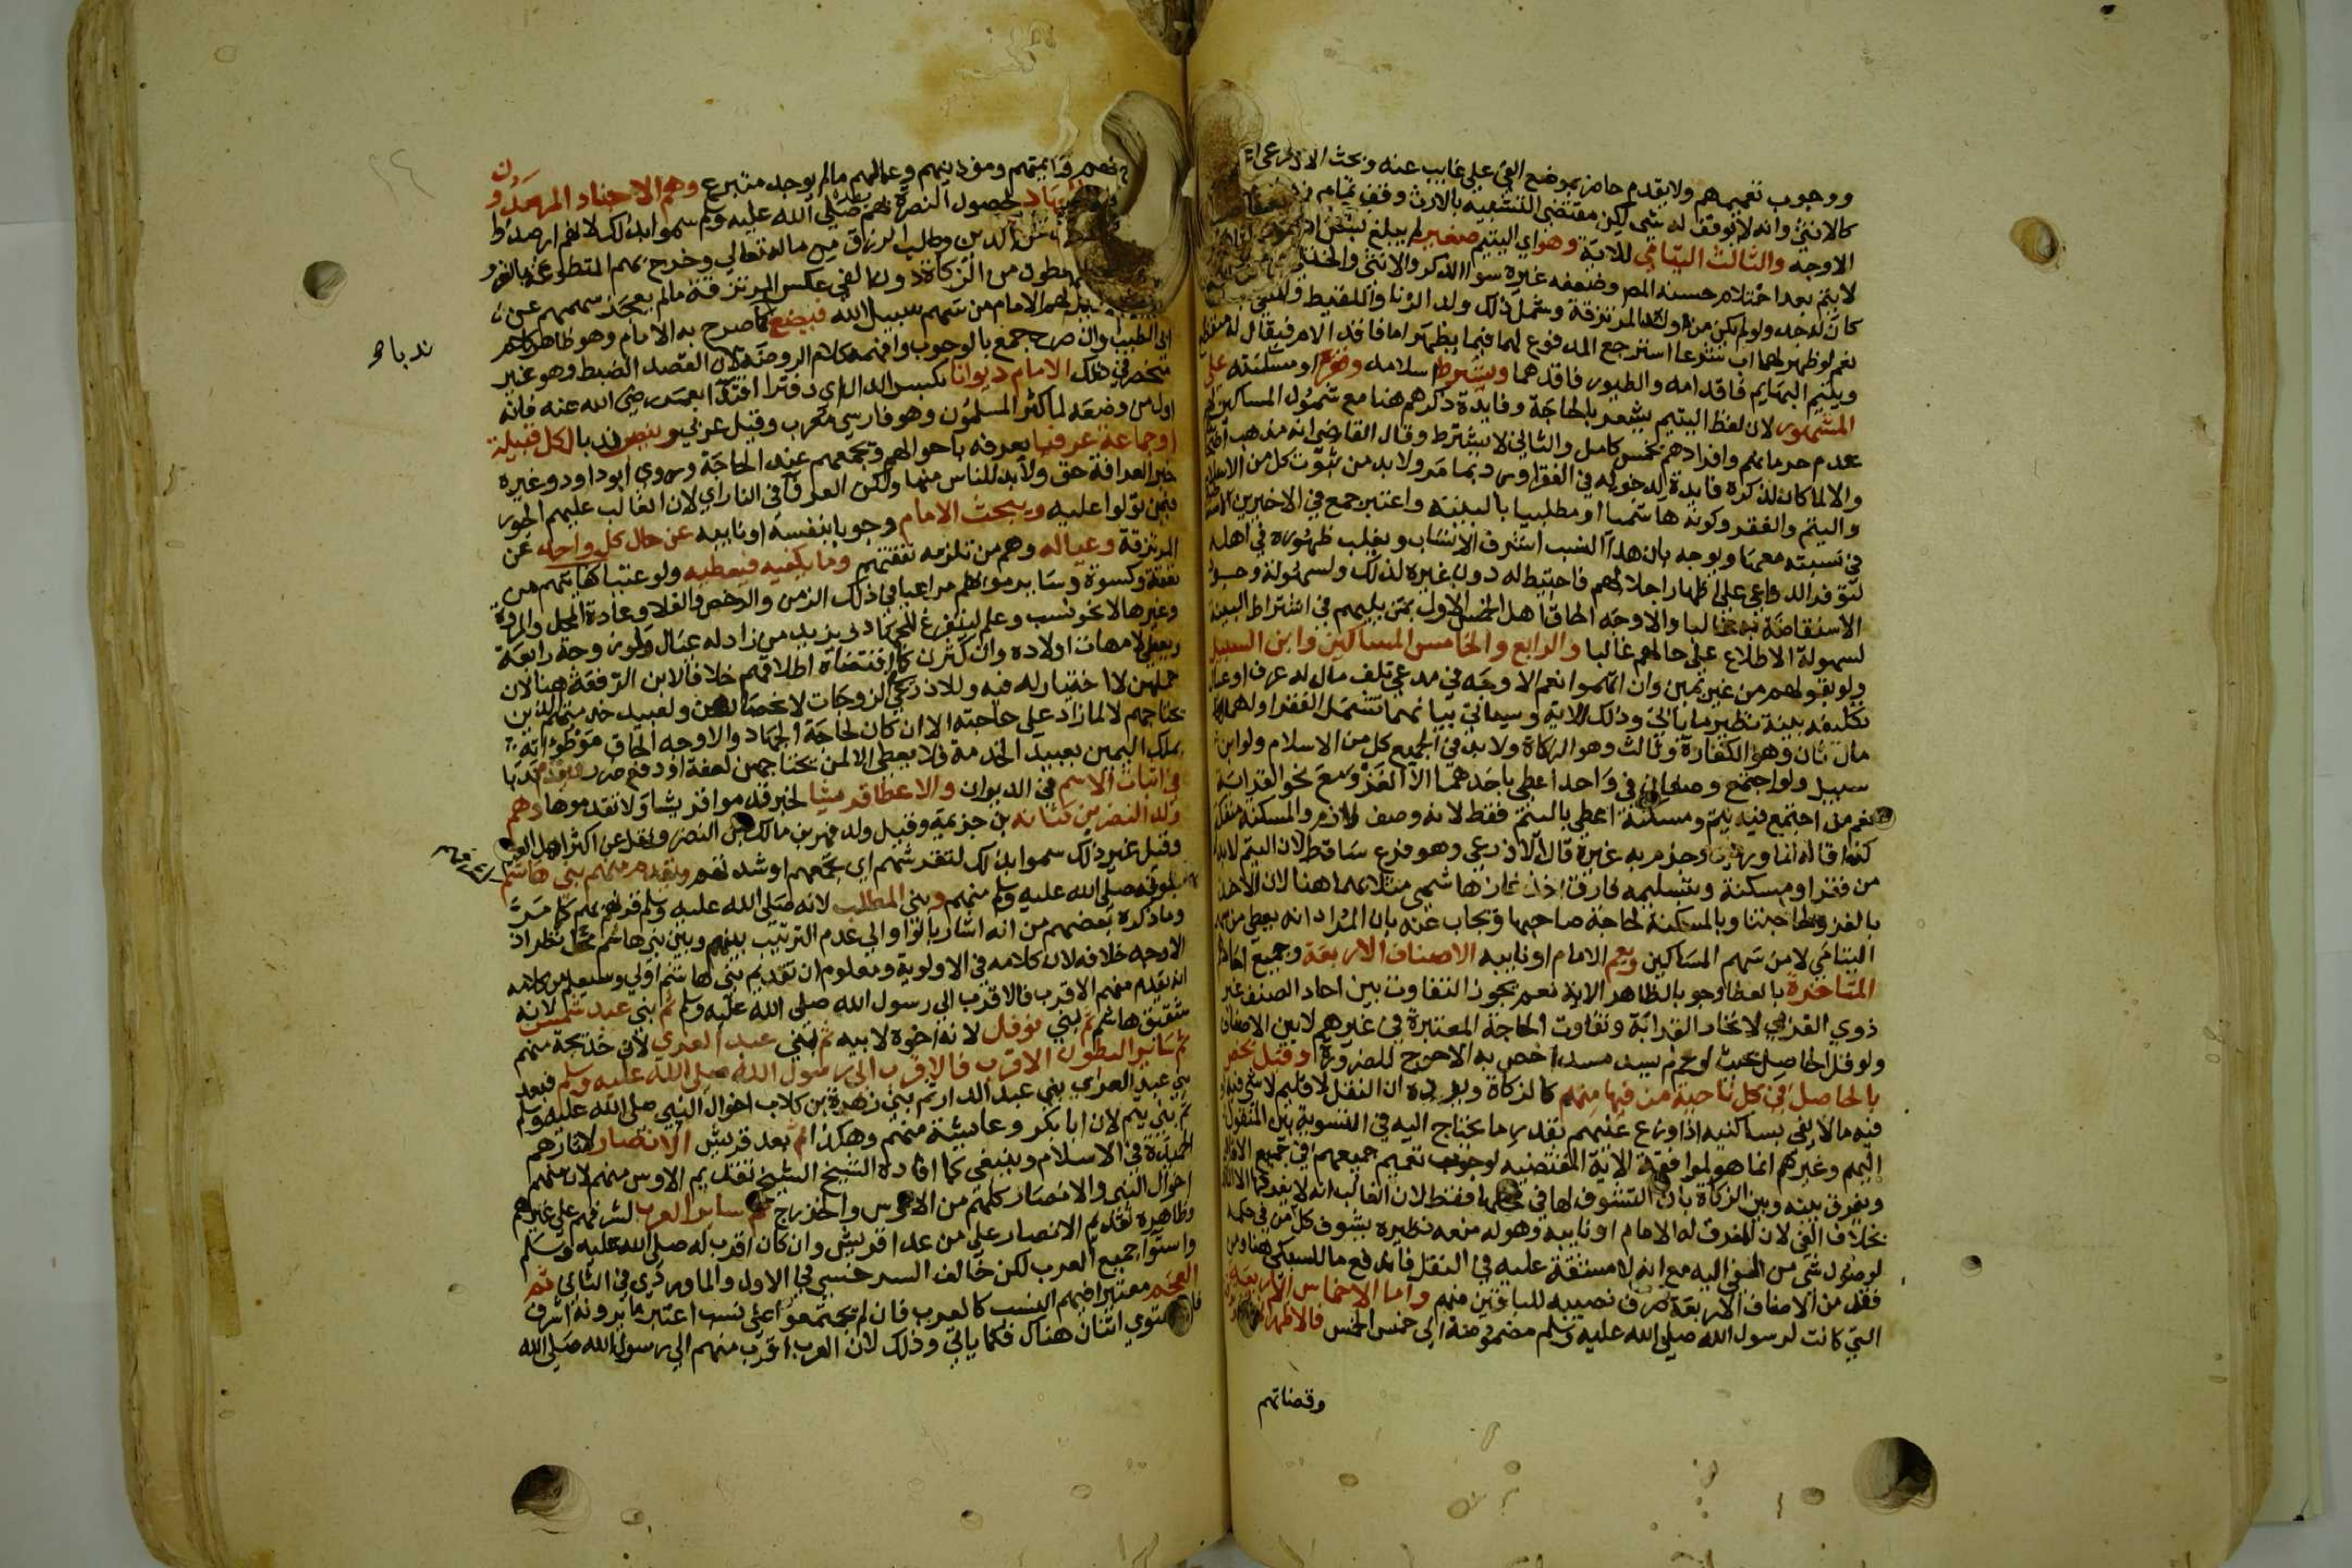 ووجوب تعميمهم ولا يقدم حاضر بموضع الفئ على غايب عنه وبحث الاذرعي
كالانثى وانه لا يوقف له شي لكن مقتضى التشبيه بالارث وقف تمام
الاوجه والثالث اليتامي للاية وهو اي اليتيم صغير لم يبلغ
لا يتم بعد احتلام حسنه المص وضعفه غيره سوا الذكر والانثى والخنثى
كان له جد ولو لم يكن من اولاد المرتزقة وشمل ذلك ولد الزنا واللقيط والمنفي
نعم لو ظهر لهما اب شرعا استرجع المدفوع لهما فيما يظهر اما فاقد الام فيقال له منقطع
ويتيم البهايم فاقد امه والطيور فاقدهما ويشترط اسلامه وفقره او مسكنته على
المشهور لان لفظ اليتيم يشعر بالحاجة وفايدة ذكرهم هنا مع شمول المساكين لهم
عدم حرمانهم وافرادهم بخمس كامل والثاني لا يشترط وقال القاضي انه مذهب
والا لما كان لذكره فايدة لدخوله في الفقرا ورد بما مر ولا بد من ثبوت كل من الاسلام
واليتم والفقر وكونه هاشميا او مطلبيا بالبينة واعتبر جمع في الاخيرين
في نسبته معها ويوجه بان هذا النسب اشرف الانساب ويغلب ظهوره في اهله
لتوفر الدواعي على اظهار اجلالهم فاحتيط له دون غيره لذلك ولسهولة وجود
الاستفاضة به غالبا والاوجه الحاق اهل الخمس الاول بمن يليهم في اشتراط البينة
لسهولة الاطلاع على حالهم غالبا والرابع والخامس المساكين وابن السبيل
ولو بقولهم من غير يمين وان اتهموا نعم الاوجه في مدعي تلف مال له عرف او عيال
تكليفه بينة نظير ما ياتي وذلك للاية وسياتي بيانهما تشمل الفقرا ولهما
مال ثان وهو الكفارة وثالث وهو الزكاة ولا بد في الجميع كل من الاسلام ولو ابن
سبيل ولو اجتمع وصفان في واحد اعطي باحدهما الا الغزو مع نحو القرابة
نعم من اجتمع فيه يتم ومسكنة اعطي باليتم فقط لانه وصف لازم والمسكنة منفكة
كذا قاله الماوردي وجزم به غيره قال الاذرعي وهو فرع ساقط لان اليتم لا بد
من فقر او مسكنة وبتسليمه فارق اخذ غاز هاشمي مثلا بهما هنا لان الاخذ
بالغزو لحاجتنا وبالمسكنة لحاجة صاحبها ويجاب عنه بان المراد انه يعطى من سهم
اليتامي لا من سهم المساكين ويعم الامام او نايبه الاصناف الاربعة وجميع احاد
المتاخرة بالعطا وجوبا لظاهر الاية نعم يجوز التفاوت بين احاد الصنف غير
ذوي القربي لاتحاد القرابة وتفاوت الحاجة المعتبرة في غيرهم لا بين الاصناف
ولو قل الحاصل بحيث لو عم لم يسد مسدا خص به الاحوج للضرورة وقيل يخص
بالحاصل في كل ناحية من فيها منهم كالزكاة ويرده ان النقل لاقليم لا شي فيه
فيه ما لا يفي بساكنيه اذا وزع عليهم بقدر ما يحتاج اليه في التسوية بين المنقول
اليهم وغيرهم انما هو لموافقة الاية المقتضيه لوجوب تعميم جميعهم في جميع الاقاليم
ويفرق بينه وبين الزكاة بان التشوف لها في محلها فقط لان الغالب انه لا يفرقها الا المالك
بخلاف الفي لان المفرق له الامام او نايبه وهو له منعه نظيره بشوف كل من في حكمه
لوصول شي من الفي اليه مع انه لا مشقة عليه في النقل فاندفع ما للسبكي هنا ومن
فقد من الاصناف الاربعة صرف نصيبه للباقين منهم واما الاخماس الاربعة
التي كانت لرسول الله صلى الله عليه وسلم مضمومة الي خمس الخمس فالاظهر
وقضاتهم
وايمتهم ومؤذنيهم وعمالهم ما لم يوجد متبرع وهم الاجناد المرصدون
لحصول النصرة بهم بعده صلى الله عليه وسلم سموا بذلك لانهم ارصدوا
عن الدين وطلب الرزق من ماله تعالي وخرج بهم المتطوعة بالغزو
يعطون من الزكاة دون الفي عكس المرتزقة ما لم يعجز سهمهم عن
لهم الامام من سهم سبيل الله فيضع كما صرح به الامام وهو ظاهر كلام
ابي الطيب وان صرح جمع بالوجوب وافهمه كلام الروضة لان القصد الضبط وهو غير
منحصر في ذلك الامام ديوانا بكسر الدال اي دفترا اقتدا بعمر رضي الله عنه فانه
اول من وضعه لما كثر المسلمون وهو فارسي معرب وقيل عربي وينصب ندبا لكل قبيلة
او جماعة عريفا يعرفه باحوالهم ويجمعهم عند الحاجة وروي ابو داود وغيره
خبر العرافة حق ولا بد للناس منها ولكن العرفا في النار اي لان الغالب عليهم الجور
فيمن تولوا عليه ويبحث الامام وجوبا بنفسه او نايبه عن حال كل واحد من
المرتزقة وعياله وهم من تلزمه نفقتهم وما يكفيه فيعطيه ولو غنيا كفايتهم من
نفقة وكسوة وساير مونهم مراعيا في ذلك الزمن والرخص والغلا وعادة المحل والمروة
وغيرها لا نحو نسب وعلم ليتفرغ للجهاد ويزيد من زاد له عيال ولو زوجة رابعة
ويعطي لامهات اولاده وان كثرن كما اقتضاه اطلاقهم خلافا لابن الرفعة هنا لان
حملهن لا اختيار له فيه وللاذرعي الزوجات لانحصارهن ولعبيد خدمتهم الذين
يحتاجهم لا لما زاد على حاجته الا ان كان لحاجة الجهاد والاوجه الحاق موطؤاته
بملك اليمين بعبيد الخدمة فلا يعطى الا لمن يحتاجهن لعفة او دفع ضرر ويقدم ندبا
في اثبات الاسم في الديوان والاعطا قريشا لخبر قدموا قريشا ولا تقدموها وهم
ولد النضر بن كنانة بن خزيمة وقيل ولد فهر بن مالك بن النضر ونقل عن اكثر اهل العلم
وقيل غير ذلك سموا بذلك لتقرشهم اي تجمعهم او شدتهم ويقدم منهم بني هاشم
لكونه صلى الله عليه وسلم منهم وبني المطلب لانه صلى الله عليه وسلم قرنهم بهم كما مر
وما ذكره بعضهم من انه اشار بالواو الي عدم الترتيب بينهم وبين بني هاشم محل نظر اذ
الاوجه خلافه لان كلامه في الاولوية ومعلوم ان تقديم بني هاشم اولي وسيعلم من كلامه
انه يقدم منهم الاقرب فالاقرب الي رسول الله صلى الله عليه وسلم ثم بني عبد شمس لانه
شقيق هاشم ثم بني نوفل لانه اخوه لابيه ثم بني عبد العزي لان خديجة منهم
ثم ساير البطون الاقرب فالاقرب الى رسول الله صلى الله عليه وسلم فبعد
بني عبد العزي بني عبد الدار ثم بني زهرة بن كلاب اخوال النبي صلى الله عليه وسلم
ثم بني تيم لان ابا بكر وعايشة منهم وهكذا ثم بعد قريش الانصار لاثارهم
الحميدة في الاسلام وينبغي كما افاده الشيخ تقديم الاوس منهم لان منهم
اخوال النبي والانصار كلهم من الاوس والخزرج ثم ساير العرب لشرفهم على غيرهم
وظاهره تقديم الانصار على من عدا قريش وان كان اقرب له صلى الله عليه وسلم
واستوا جميع العرب لكن خالف السرخسي في الاول والماوردي في الثاني ثم
العجم معتبرا فيهم النسب كالعرب فان لم يجتمعوا على نسب اعتبر ما يرونه اشرف
فان استوي اثنان هناك فكما ياتي وذلك لان العرب اقرب منهم الي رسول الله صلى الله
ندبا